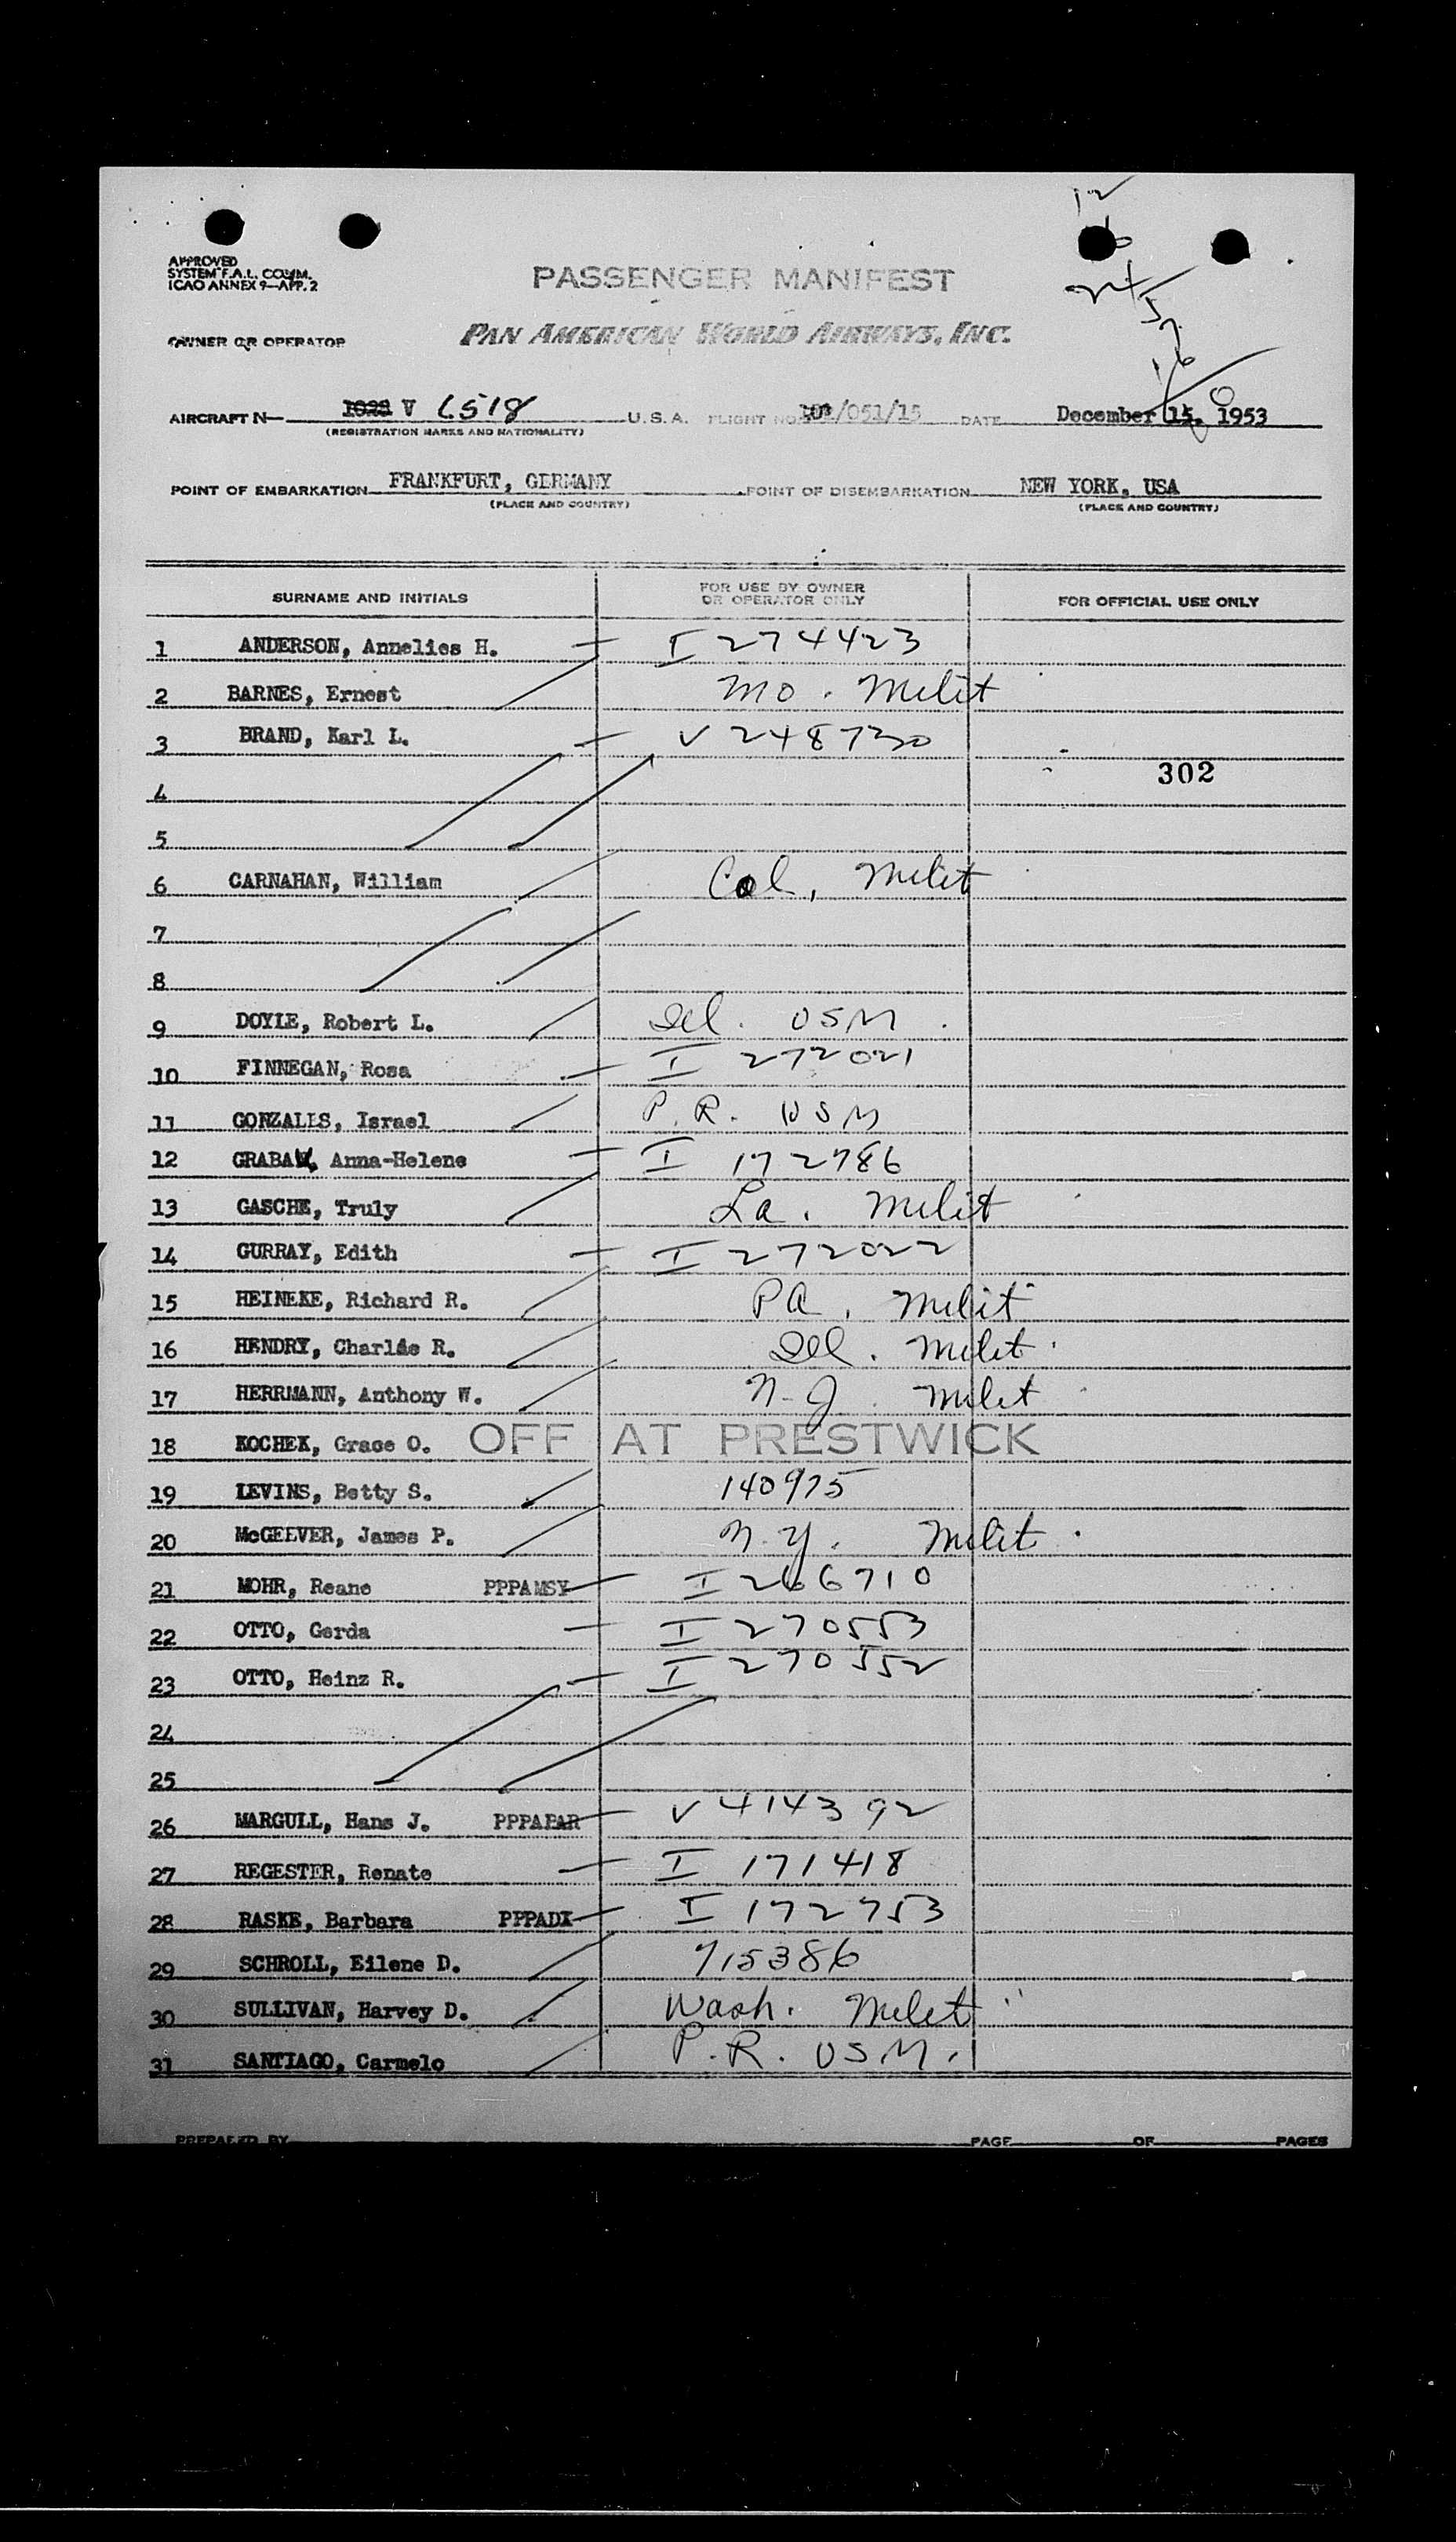 APPROVED
SYSTEM F.A.L. COMM.
ICAO ANNEX 9—APP. 2
PASSENGER MANIFEST
OWNER OR OPERATOR PAN AMERICAN WORLD AIRWAYS, INC.
AIRCRAFT N— V 6518 U.S.A. FLIGHT NO. /051/15 DATE December 15, 1953
(REGISTRATION MARKS AND NATIONALITY)
POINT OF EMBARKATION FRANKFURT, GERMANY POINT OF DISEMBARKATION NEW YORK, USA
(PLACE AND COUNTRY) (PLACE AND COUNTRY)
SURNAME AND INITIALS FOR USE BY OWNER OR OPERATOR ONLY FOR OFFICIAL USE ONLY
1 ANDERSON, Annelies H. — I 274423
2 BARNES, Ernest Mo. Milit
3 BRAND, Karl L. — V 248730
302
4
5
6 CARNAHAN, William Cal, Milit
7
8
9 DOYLE, Robert L. Del. USM.
10 FINNEGAN, Rosa — I 272021
11 GONZALES, Israel P.R. USM
12 GRABAW, Anna-Helene — I 172786
13 GASCHE, Truly La. Milit
14 GURRAY, Edith — I 272022
15 HEINEKE, Richard R. PA. Milit
16 HENDRY, Charlie R. Del. Milit
17 HERRMANN, Anthony W. N.J. Milit
18 KOCHEK, Grace O. OFF AT PRESTWICK
19 LEVINS, Betty S. 140975
20 McGEEVER, James P. N.Y. Milit
21 MOHR, Reane PPPAMSY — I 266710
22 OTTO, Gerda — I 270553
23 OTTO, Heinz R. — I 270552
24
25
26 MARGULL, Hans J. PPPAPAR — V 414392
27 REGESTER, Renate — I 171418
28 RASKE, Barbara PPPADX — I 172753
29 SCHROLL, Eilene D. 715386
30 SULLIVAN, Harvey D. Wash. Milit
31 SANTIAGO, Carmelo P.R. USM.
PREPARED BY PAGE OF PAGES